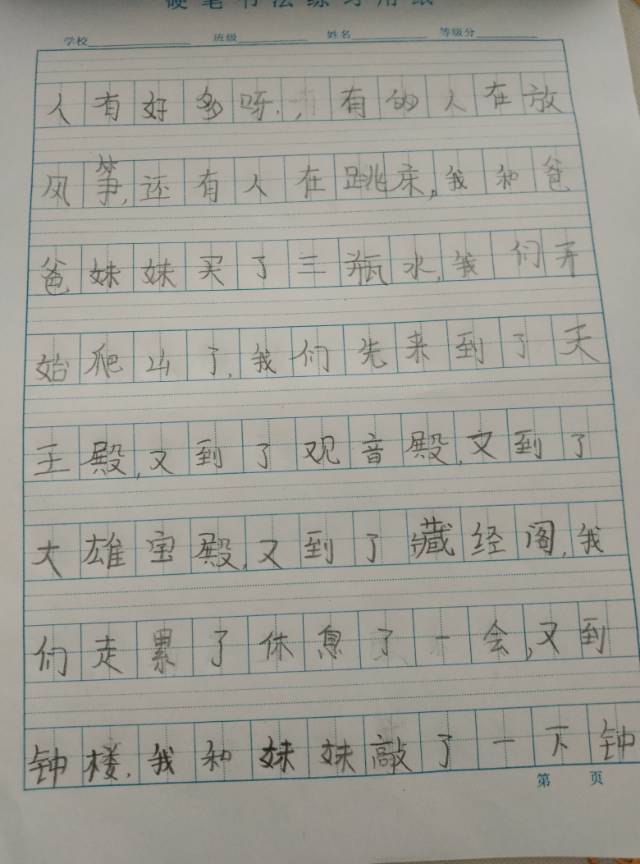 硬笔书法练习用纸
学校 班级 姓名 等级分
人有好多呀,有的人在放
风筝,还有人在跳床,我和爸
爸妹妹买了三瓶水,我们开
始爬山了,我们先来到了天
王殿,又到了观音殿,又到了
大雄宝殿,又到了藏经阁,我
们走累了休息了一会,又到
钟楼,我和妹妹敲了一下钟
第 页